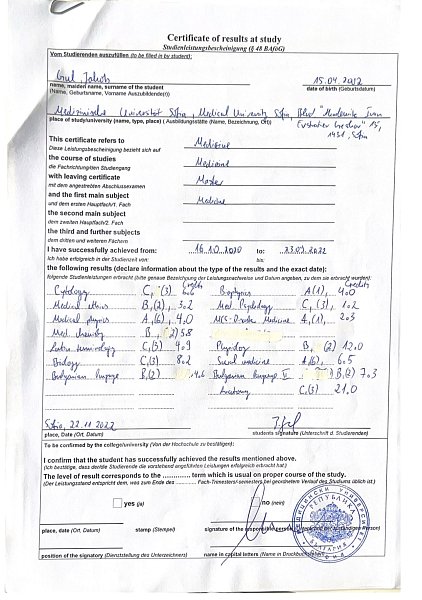 Certificate of results at study
Studienleistungsbescheinigung (§ 48 BAföG)
Vom Studierenden auszufüllen (to be filled in by student):
Gul, Jakob 15.04.2002
name, maiden name, surname of the student date of birth (Geburtsdatum)
(Name, Geburtsname, Vorname Auszubildende(r))
Medizinische Universität Sofia, Medical University Sofia, Blvd "Akademik Ivan
place of study/university (name, type, place) ( Ausbildungsstätte (Name, Bezeichnung, Ort))
15,
1431, Sofia
This certificate refers to Medicine
Diese Leistungsbescheinigung bezieht sich auf
the course of studies Medicine
die Fachrichtung/den Studiengang
with leaving certificate Master
mit dem angestrebten Abschlussexamen
and the first main subject Medicine
und dem ersten Hauptfach/1. Fach
the second main subject
dem zweiten Hauptfach/2. Fach
the third and further subjects
dem dritten und weiteren Fächern
I have successfully achieved from: 16.10.2020 to: 23.09.2022
Ich habe erfolgreich in der Studienzeit von: bis:
the following results (declare information about the type of the results and the exact date):
folgende Studienleistungen erbracht (bitte genaue Bezeichnung der Leistungsnachweise und Datum angeben, zu dem sie erbracht wurden):
Credits Credits
Cytology C, (3) Biophysics A(1), 4.0
Medical ethics B,(2), 3.2 Med. Psychology C, (3), 1.2
Medical physics A,(6), 4.0 Medicine A,(1), 2.3
Med. chemistry B 5.8
Latin terminology C,(3) 4.9 Physiology B, (2) 12.0
Biology C,(3) 8.2 Social medicine A(6), 6.5
Bulgarian language B,(2) 4.6 Bulgarian language II B(2) 7.3
Anatomy C,(3) 21.0
Sofia, 22.11.2022
place, date (Ort, Datum) students signature (Unterschrift d. Studierenden)
To be confirmed by the college/university (Von der Hochschule zu bestätigen):
I confirm that the student has successfully achieved the results mentioned above.
(Ich bestätige, dass der/die Studierende die vorstehend angeführten Leistungen erfolgreich erbracht hat.)
The level of result corresponds to the ............ term which is usual on proper course of the study.
(Der Leistungsstand entspricht dem, was zum Ende des ............ Fach-Trimesters/-semesters bei geordnetem Verlauf des Studiums üblich ist.)
yes (ja) no (nein)
place, date (Ort, Datum) stamp (Stempel) signature of the responsible person
position of the signatory (Dienststellung des Unterzeichners) name in capital letters (Name in Druckbuchstaben)
МЕДИЦИНСКИ УНИВЕРСИТЕТ
РЕПУБЛИКА
БЪЛГАРИЯ
СОФИЯ